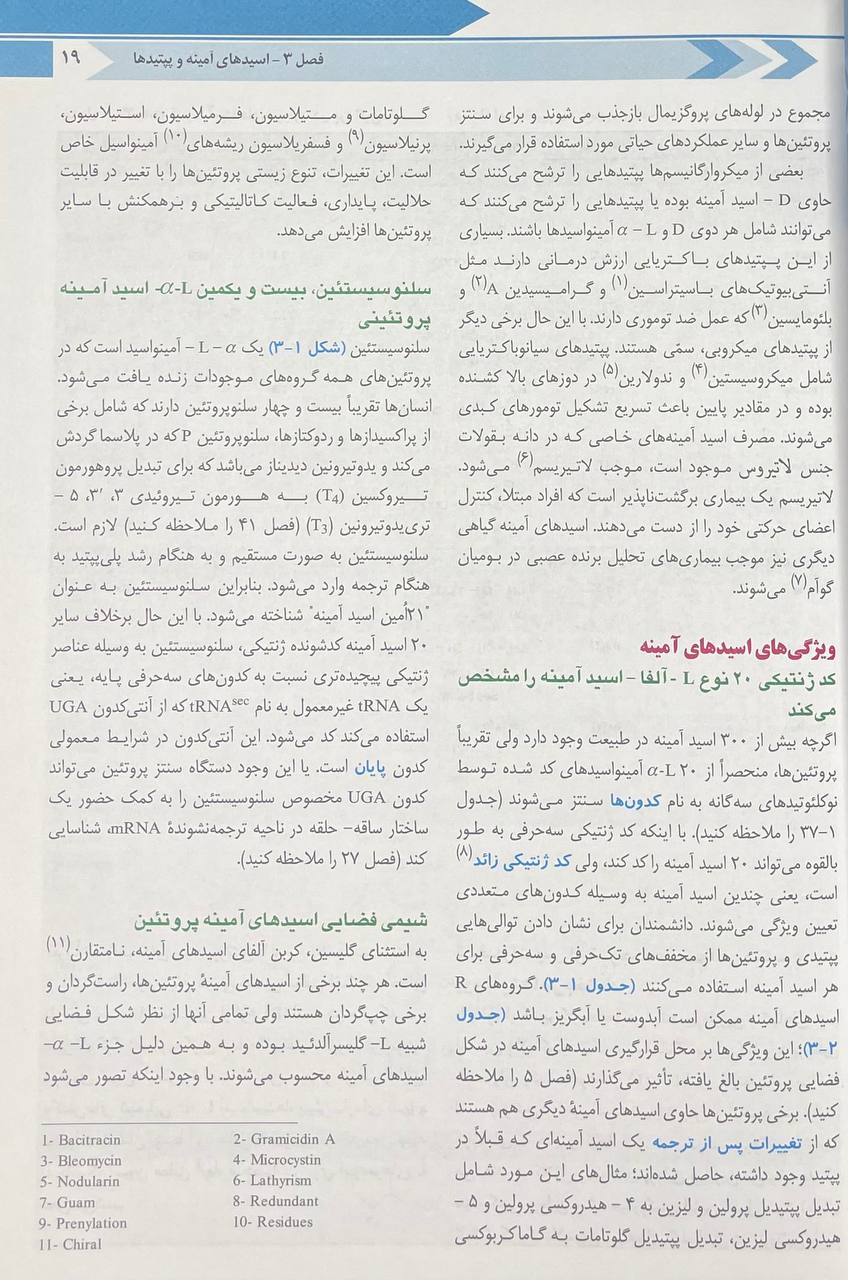 فصل ۳ - اسیدهای آمینه و پپتیدها
۱۹
مجموع در لوله‌های پروگزیمال بازجذب می‌شوند و برای سنتز
پروتئین‌ها و سایر عملکردهای حیاتی مورد استفاده قرار می‌گیرند.
بعضی از میکروارگانیسم‌ها پپتیدهایی را ترشح می‌کنند که
حاوی D - اسید آمینه بوده یا پپتیدهایی را ترشح می‌کنند که
می‌توانند شامل هر دوی D و L - α آمینواسیدها باشند. بسیاری
از این پپتیدهای باکتریایی ارزش درمانی دارند مثل
آنتی‌بیوتیک‌های باسیتراسین(۱) و گرامیسیدین A(۲) و
بلئومایسین(۳) که عمل ضد توموری دارند. با این حال برخی دیگر
از پپتیدهای میکروبی، سمّی هستند. پپتیدهای سیانوباکتریایی
شامل میکروسیستین(۴) و ندولارین(۵) در دوزهای بالا کشنده
بوده و در مقادیر پایین باعث تسریع تشکیل تومورهای کبدی
می‌شوند. مصرف اسید آمینه‌های خاصی که در دانه بقولات
جنس لاتیروس موجود است، موجب لاتیریسم(۶) می‌شود.
لاتیریسم یک بیماری برگشت‌ناپذیر است که افراد مبتلا، کنترل
اعضای حرکتی خود را از دست می‌دهند. اسیدهای آمینه گیاهی
دیگری نیز موجب بیماری‌های تحلیل برنده عصبی در بومیان
گوآم(۷) می‌شوند.
ویژگی‌های اسیدهای آمینه
کد ژنتیکی ۲۰ نوع L - آلفا - اسید آمینه را مشخص
می‌کند
اگرچه بیش از ۳۰۰ اسید آمینه در طبیعت وجود دارد ولی تقریباً
پروتئین‌ها، منحصراً از ۲۰ α-L آمینواسیدهای کد شده توسط
نوکلئوتیدهای سه‌گانه به نام کدون‌ها سنتز می‌شوند (جدول
۱-۳۷ را ملاحظه کنید). با اینکه کد ژنتیکی سه‌حرفی به طور
بالقوه می‌تواند ۲۰ اسید آمینه را کد کند، ولی کد ژنتیکی زائد(۸)
است، یعنی چندین اسید آمینه به وسیله کدون‌های متعددی
تعیین ویژگی می‌شوند. دانشمندان برای نشان دادن توالی‌هایی
پپتیدی و پروتئین‌ها از مخفف‌های تک‌حرفی و سه‌حرفی برای
هر اسید آمینه استفاده می‌کنند (جدول ۱-۳). گروه‌های R
اسیدهای آمینه ممکن است آبدوست یا آبگریز باشد (جدول
۲-۳)؛ این ویژگی‌ها بر محل قرارگیری اسیدهای آمینه در شکل
فضایی پروتئین بالغ یافته، تأثیر می‌گذارند (فصل ۵ را ملاحظه
کنید). برخی پروتئین‌ها حاوی اسیدهای آمینهٔ دیگری هم هستند
که از تغییرات پس از ترجمه یک اسید آمینه‌ای که قبلاً در
پپتید وجود داشته، حاصل شده‌اند؛ مثال‌های این مورد شامل
تبدیل پپتیدیل پرولین و لیزین به ۴ - هیدروکسی پرولین و ۵ -
هیدروکسی لیزین، تبدیل پپتیدیل گلوتامات به گاماکربوکسی
گلوتامات و متیلاسیون، فرمیلاسیون، استیلاسیون،
پرنیلاسیون(۹) و فسفریلاسیون ریشه‌های(۱۰) آمینواسیل خاص
است. این تغییرات، تنوع زیستی پروتئین‌ها را با تغییر در قابلیت
حلالیت، پایداری، فعالیت کاتالیتیکی و برهمکنش با سایر
پروتئین‌ها افزایش می‌دهد.
سلنوسیستئین، بیست و یکمین α-L- اسید آمینه
پروتئینی
سلنوسیستئین (شکل ۱-۳) یک L - α - آمینواسید است که در
پروتئین‌های همه گروه‌های موجودات زنده یافت می‌شود.
انسان‌ها تقریباً بیست و چهار سلنوپروتئین دارند که شامل برخی
از پراکسیدازها و ردوکتازها، سلنوپروتئین P که در پلاسما گردش
می‌کند و یدوتیرونین دیدیناز می‌باشد که برای تبدیل پروهورمون
تیروکسین (T4) به هورمون تیروئیدی ۳، ′۳، ۵ -
تری‌یدوتیرونین (T3) (فصل ۴۱ را ملاحظه کنید) لازم است.
سلنوسیستئین به صورت مستقیم و به هنگام رشد پلی‌پپتید به
هنگام ترجمه وارد می‌شود. بنابراین سلنوسیستئین به عنوان
"۲۱اُمین اسید آمینه" شناخته می‌شود. با این حال برخلاف سایر
۲۰ اسید آمینه کدشونده ژنتیکی، سلنوسیستئین به وسیله عناصر
ژنتیکی پیچیده‌تری نسبت به کدون‌های سه‌حرفی پایه، یعنی
یک tRNA غیرمعمول به نام tRNAsec که از آنتی‌کدون UGA
استفاده می‌کند کد می‌شود. این آنتی‌کدون در شرایط معمولی
کدون پایان است. یا این وجود دستگاه سنتز پروتئین می‌تواند
کدون UGA مخصوص سلنوسیستئین را به کمک حضور یک
ساختار ساقه- حلقه در ناحیه ترجمه‌نشوندهٔ mRNA، شناسایی
کند (فصل ۲۷ را ملاحظه کنید).
شیمی فضایی اسیدهای آمینه پروتئین
به استثنای گلیسین، کربن آلفای اسیدهای آمینه، نامتقارن(۱۱)
است. هر چند برخی از اسیدهای آمینهٔ پروتئین‌ها، راست‌گردان و
برخی چپ‌گردان هستند ولی تمامی آنها از نظر شکل فضایی
شبیه L- گلیسرآلدئید بوده و به همین دلیل جزء L- α-
اسیدهای آمینه محسوب می‌شوند. با وجود اینکه تصور می‌شود
1- Bacitracin
2- Gramicidin A
3- Bleomycin
4- Microcystin
5- Nodularin
6- Lathyrism
7- Guam
8- Redundant
9- Prenylation
10- Residues
11- Chiral